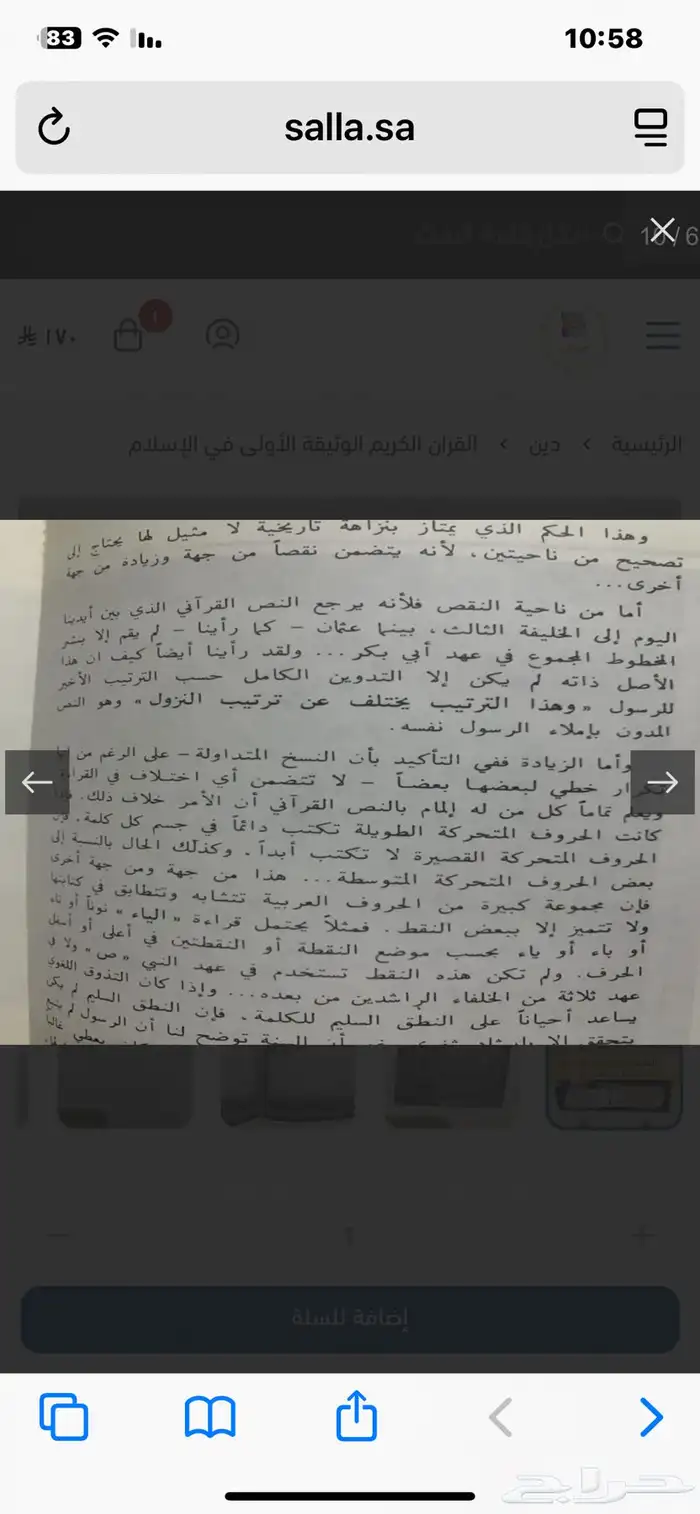 83
10:58
salla.sa
10/6
١
١٧٠
الرئيسية > دين > القران الكريم الوثيقة الأولى في الإسلام
وهذا الحكم الذي يمتاز بنزاهة تاريخية لا مثيل لها يحتاج إلى
تصحيح من ناحيتين، لأنه يتضمن نقصاً من جهة وزيادة من جهة
أخرى...
أما من ناحية النقص فلأنه يرجع النص القرآني الذي بين أيدينا
اليوم إلى الخليفة الثالث، بينما عثمان - كما رأينا - لم يقم إلا بنشر
المخطوط المجموع في عهد أبي بكر... ولقد رأينا أيضاً كيف ان هذا
الأصل ذاته لم يكن إلا التدوين الكامل حسب الترتيب الأخير
للرسول «وهذا الترتيب يختلف عن ترتيب النزول» وهو النص
المدون بإملاء الرسول نفسه.
وأما الزيادة ففي التأكيد بأن النسخ المتداولة - على الرغم من
خطي لبعضها بعضاً - لا تتضمن أي اختلاف في
تماماً كل من له إلمام بالنص القرآني أن الأمر خلاف ذلك.
كانت الحروف المتحركة الطويلة تكتب دائماً في جسم كل كلمة. فإن
الحروف المتحركة القصيرة لا تكتب أبداً. وكذلك الحال بالنسبة إلى
بعض الحروف المتحركة المتوسطة... هذا من جهة ومن جهة أخرى
فإن مجموعة كبيرة من الحروف العربية تتشابه وتتطابق في كتابتها
ولا تتميز إلا ببعض النقط. فمثلاً يحتمل قراءة «الياء» نوناً أو تاء
أو باء أو ياء بحسب موضع النقطة أو النقطتين في أعلى أو أسفل
الحرف. ولم تكن هذه النقط تستخدم في عهد النبي «ص» ولا في
عهد ثلاثة من الخلفاء الراشدين من بعده... وإذا كان التذوق اللغوي
يساعد أحياناً على النطق السليم للكلمة، فإن النطق السليم لم يكن
يتحقق إلا السنة توضح لنا أن الرسول لم
إضافة للسلة
حراج